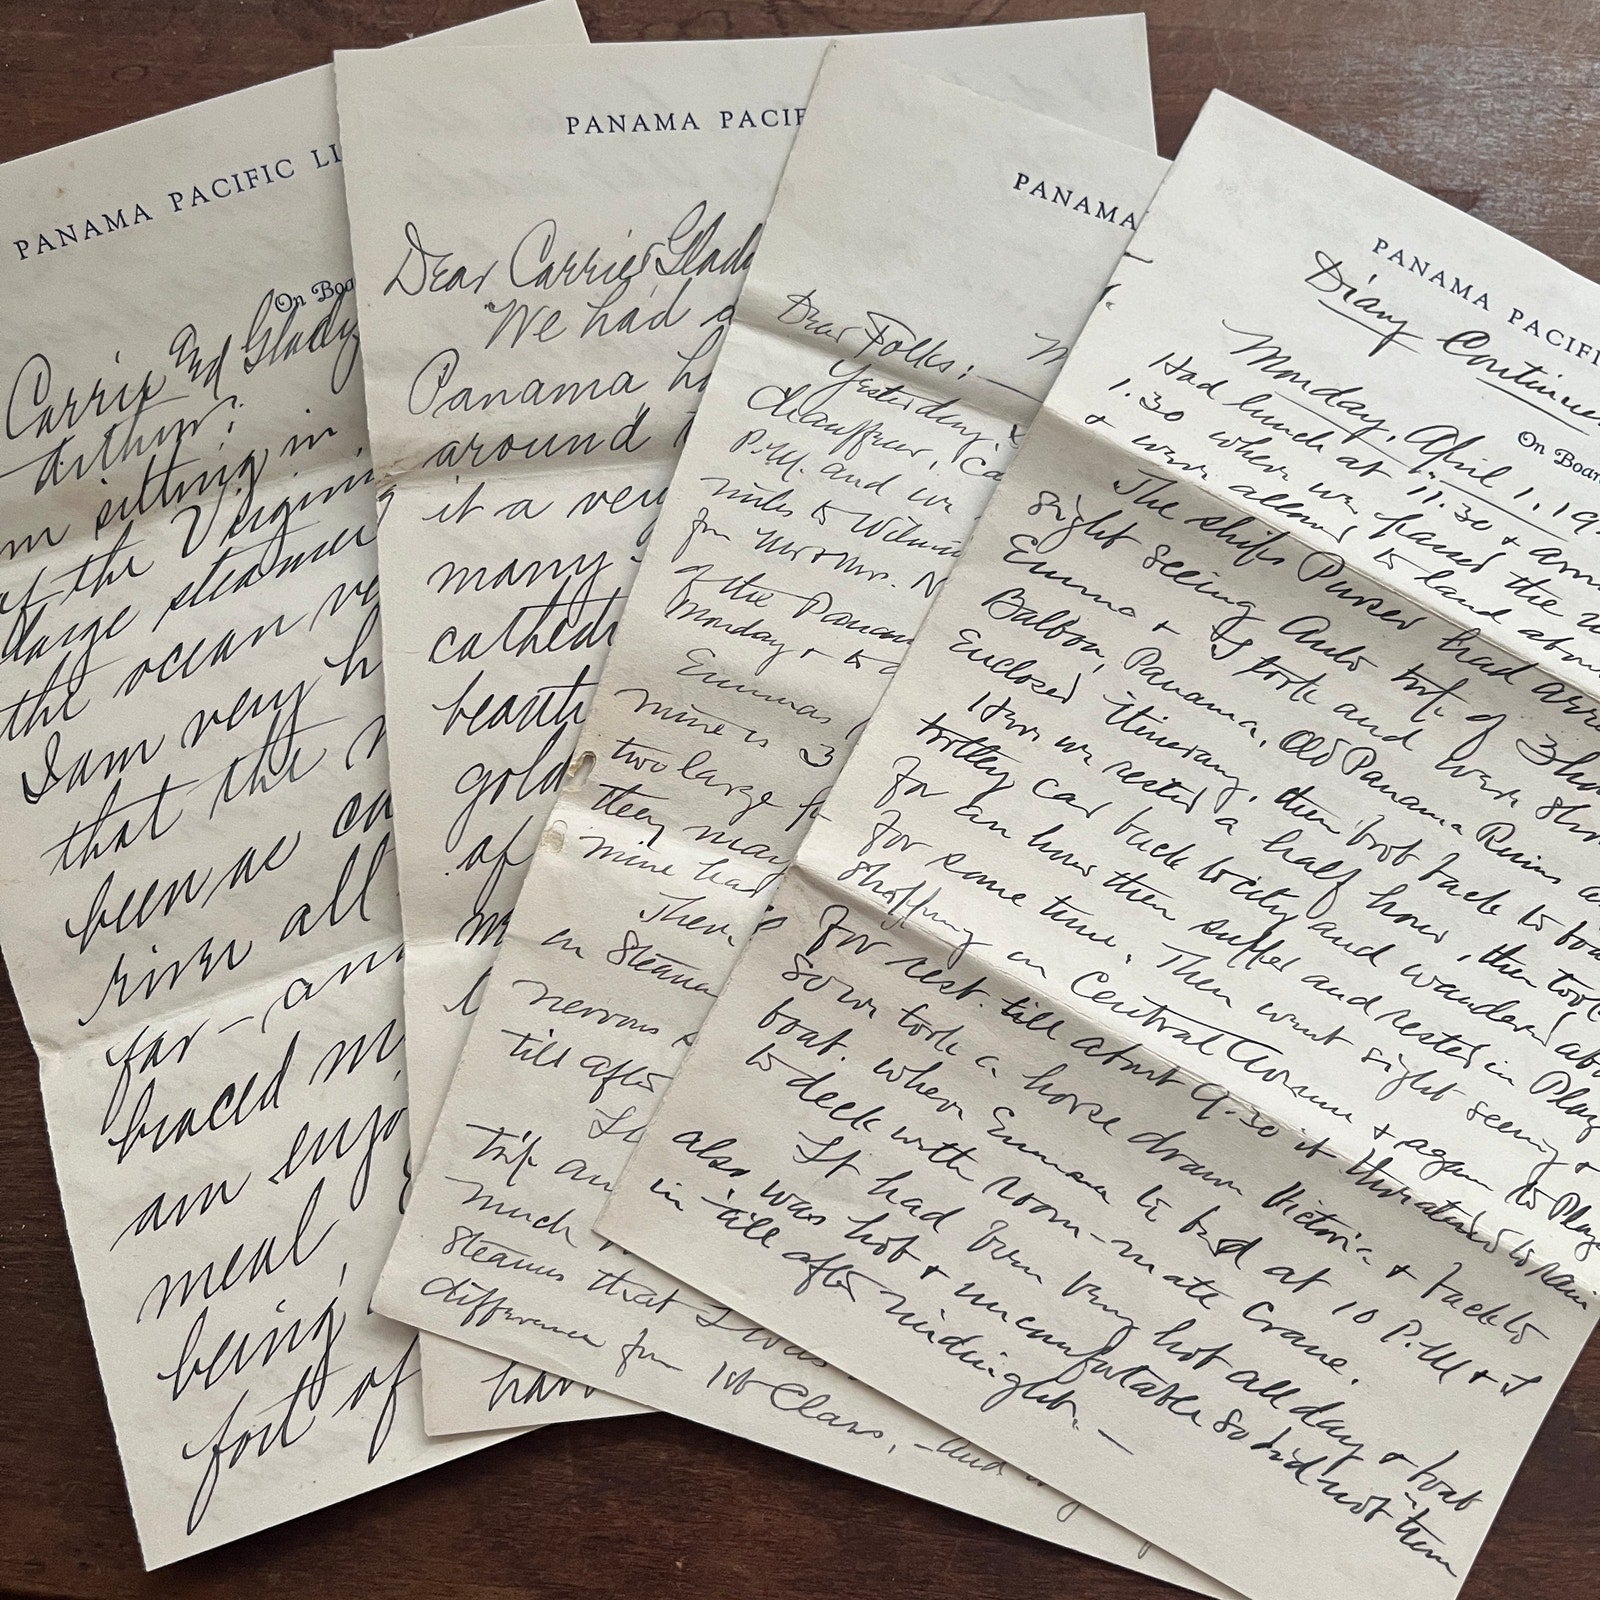 PANAMA PACIFIC LI
On Boa
Carrie and Gladys
Arthur:
am sitting in
of the Virgini
large steamer
the ocean ve
I am very h
that the
been as ca
river all
far - and
braced m
am enjo
meal
being
fort of
PANAMA PACIF
Dear Carrie & Glad
"We had a
Panama ha
around
it a very
many
cathedr
beauti
gold
of
m
l
hav
PANAMA
Dear Folks: —
Yesterday,
Chauffeur, ca
P.M. and we
miles to Wilmin
for Mr & Mrs. N
of the Panama
Monday & to
Emmas
mine is 3
two large
they may
mine had
There
on Steame
nervous
till after
I
trip an
much
Steamer that I was
difference for 1st Class, - and
PANAMA PACIFI
Diary Continued
On Boar
Monday, April 1, 19
Had lunch at 11.30 & arri
1.30 where we passed the
& were allowed to land abou
The ships Purser had arra
sight seeing Auto trip of 3 ho
Emma & I took and were sho
Balboa, Panama, Old Panama Ruins a
Enclosed itinerary, then trot back to boa
Here we rested a half hour, then took
trolley car back to city and wandered abo
for an hour then supper and rested in Plaz
for some time. Then went sight seeing &
shopping on Central Avenue & again to Plaza
for rest. till about 9.30 it threatened to rain
So we took a horse drawn Victoria & back to
boat. where Emma to bed at 10 P.M & I
to deck with room-mate Crane.
It had been very hot all day & boat
also was hot & uncomfortable so did not turn
in till after midnight. —